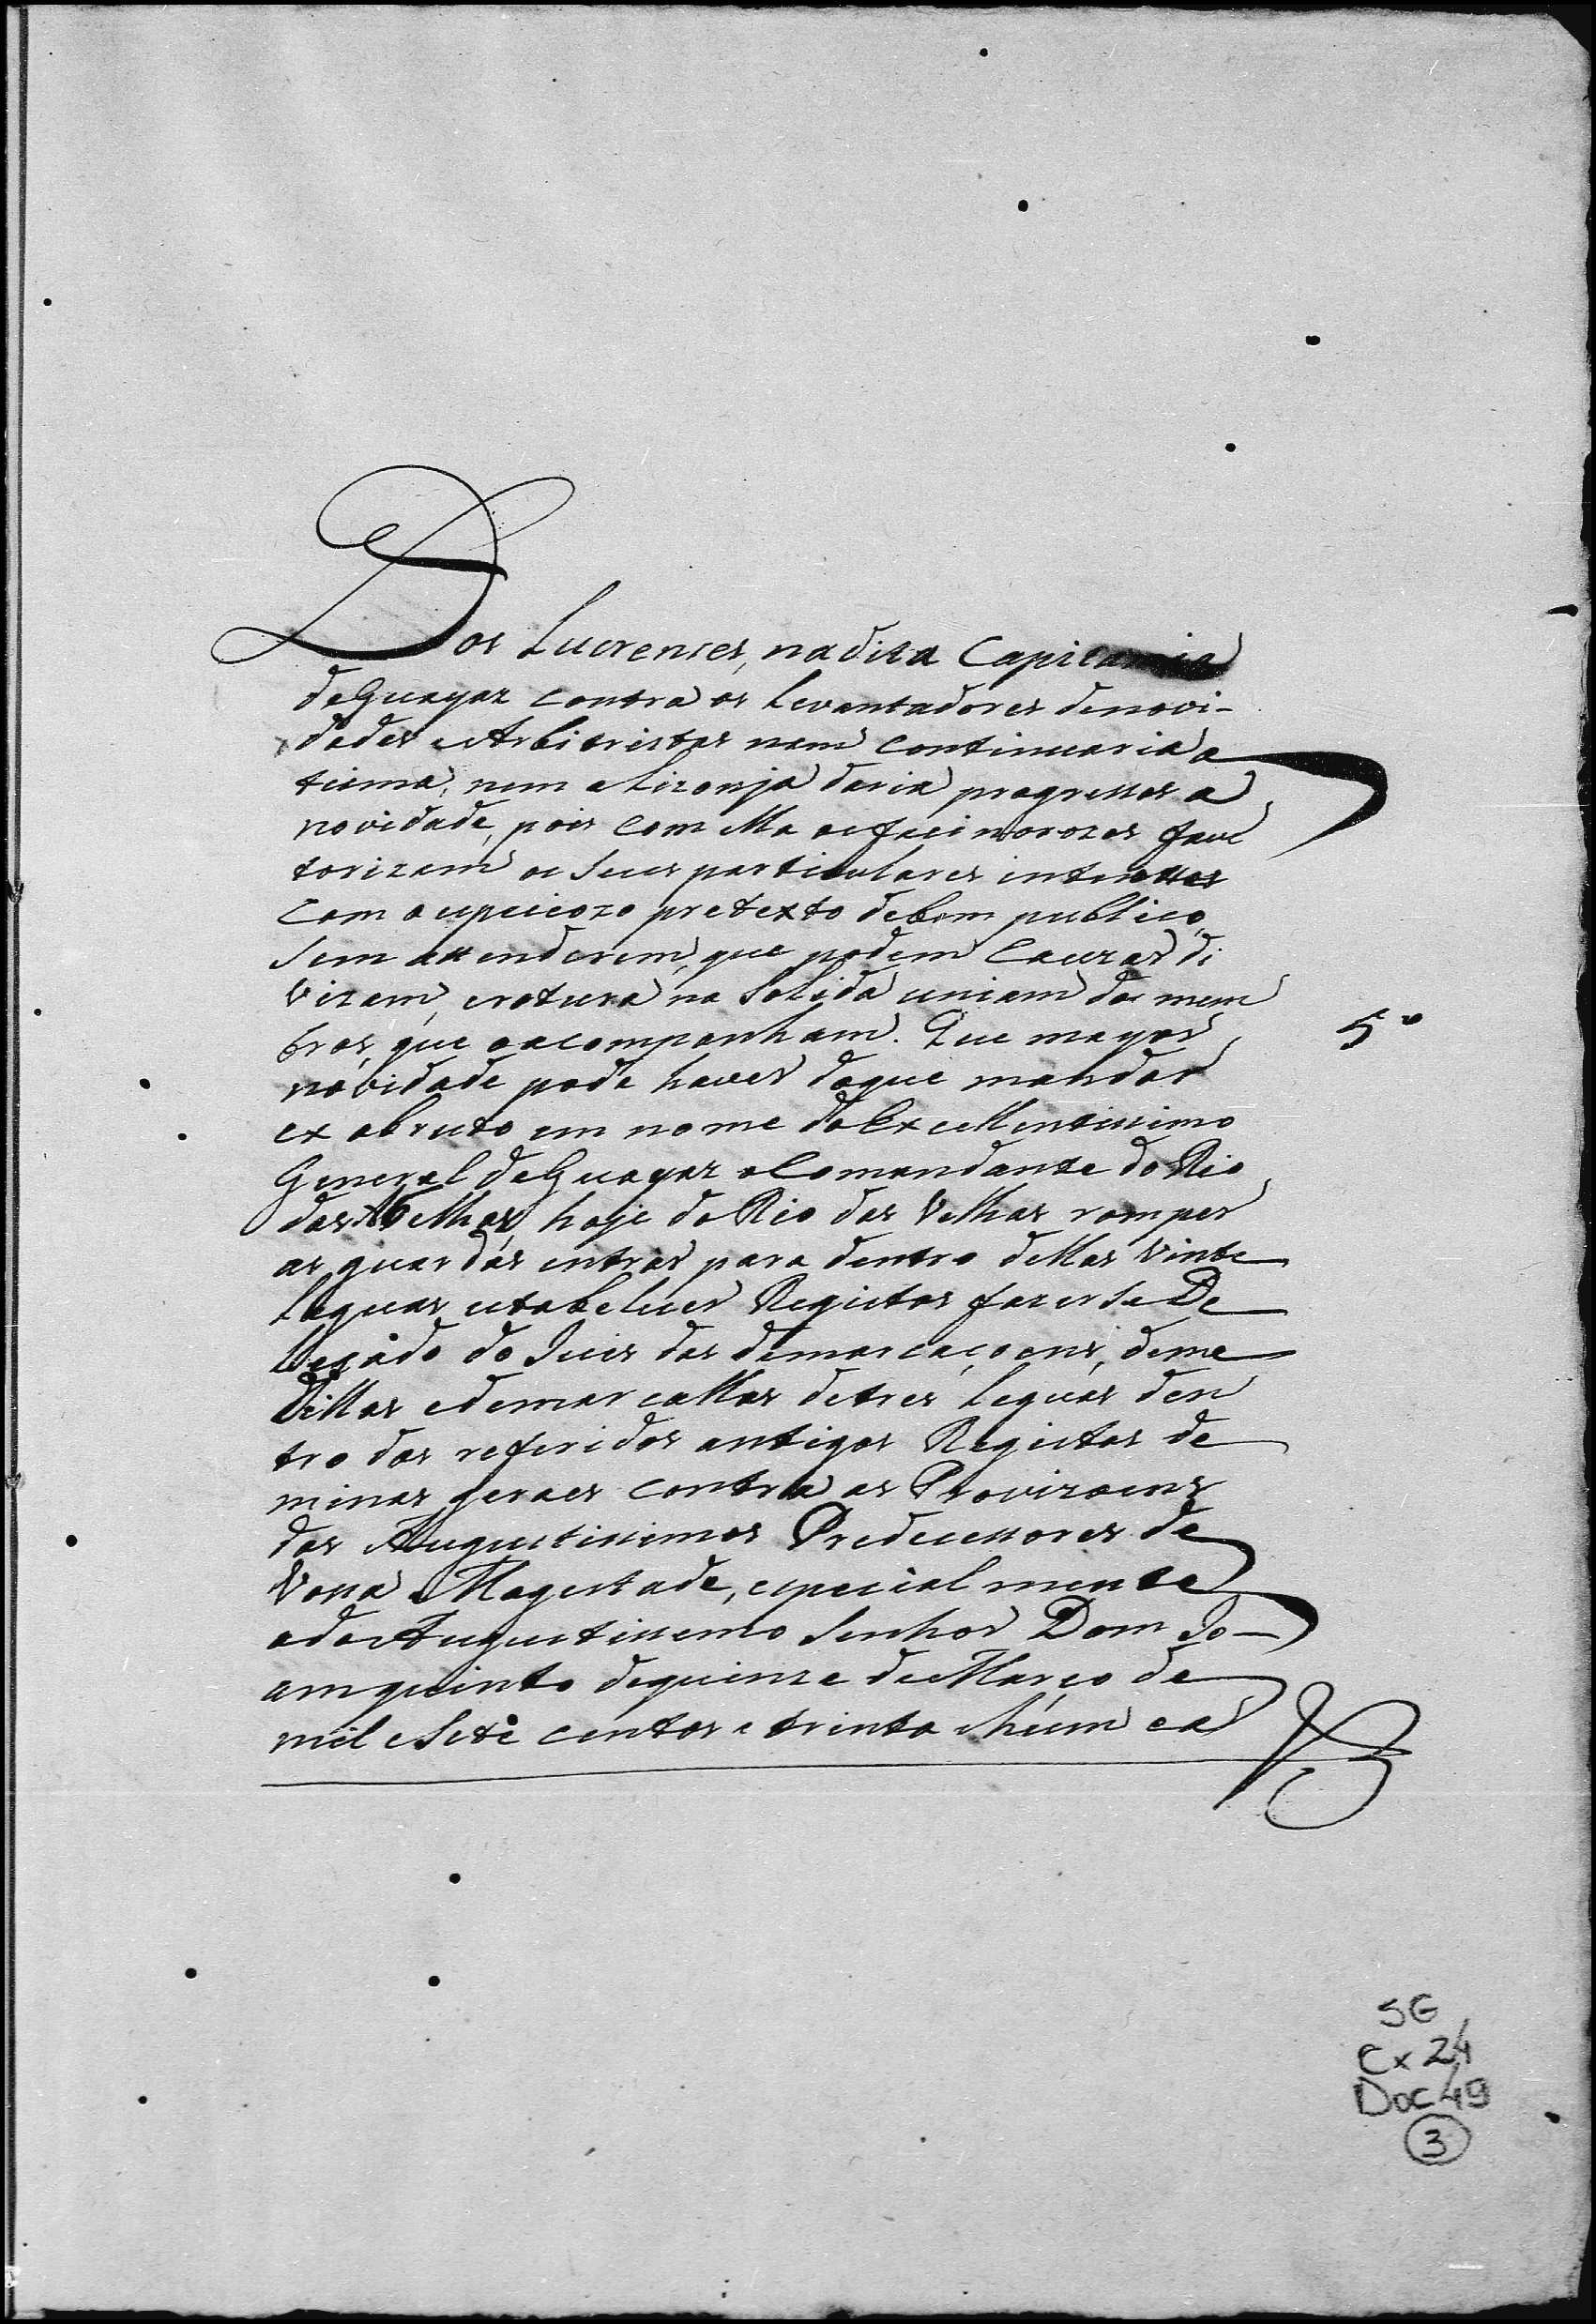 Dos Lucrenses, nadita Capitania
deGuayaz contra os Levantadores denovi-
dades eArbitristas nam continuaria a
teima, nem a Lizonja daria progressos a
novidade, pois com ella os facinorozos fauc
torizam os seus particulares interesses
com o especiozo pretexto debem publico,
sem attenderem, que podem cauzar di
vizam, erotura na solida uniam dos mem
bros, que oacompanham. Que mayor
novidade pode haver doque mandar
ex abruto em nome doExcellentissimo
General deGuayaz oComandante do Rio
das Velhas, hoje do Rio das Velhas romper
as guardas entrar para dentro dellas vinte
Leguas estabelecer Registos fazerse De
legado do Juis das demarcaçoens, deme
dillas edemarcallas detres Leguas den
tro dos referidos antigos Registos de
minas geraes contra as Provizoens
dos Augustissimos Predecessores de
Vossa Magestade, especialmente
ado Augustissemo Senhor Dom Jo-
am quinto dequinze deMarço de
mil e Sete centos e trinta ehúm ea
5º
SG
Cx 24
Doc 49
3